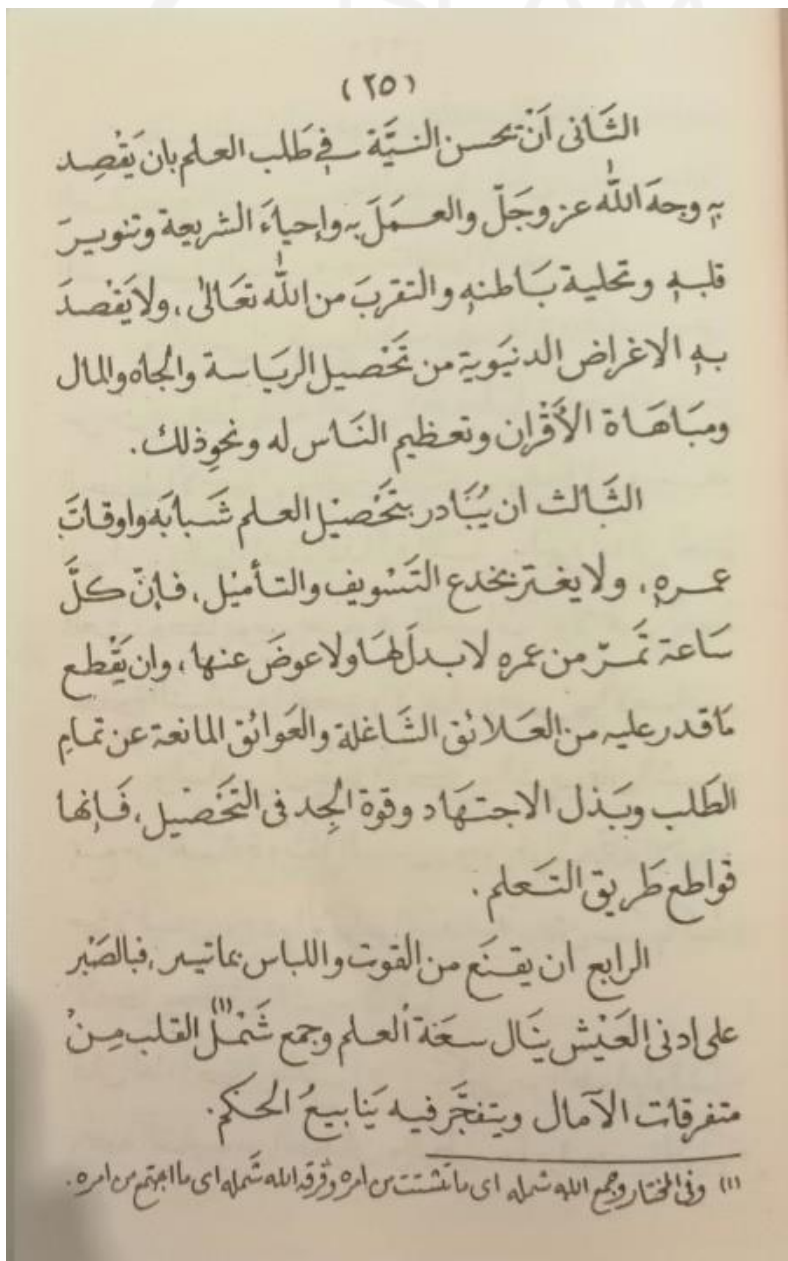 (٢٥)
الثَّانى اَنْ يحسن النيَّة فِي طَلب العلم بان يَقْصِد
بِهِ وجهَ اللّٰه عز وجَلّ والعمَلَ به وإحياءَ الشريعة وتنويرَ
قلبهِ وتحلية بَاطنهِ والتقربَ من اللّٰه تعَالٰى ، ولا يَقْصدَ
بهِ الاغراض الدنيَوية من تَحْصيل الريَاسة والجاه والمال
ومبَاهَاة الأَقْران وتعظيم النَاس له ونحوِ ذلك .
الثَّالث ان يُبَادر بتَحْصيْل العلم شَبابَه واوقاتَ
عمرهِ ، ولا يغتر بخدع التَسْويف والتأميْل ، فإنّ كلَّ
سَاعة تمَرّ من عمرهِ لا بدلَ لهَا ولا عوضَ عنها ، وان يَقْطع
مَا قدر عليه من العَلائق الشَاغلة والعَوائق المانعة عن تمامِ
الطَلب وبَذل الاجتهَاد وقوة الجِد فى التَحْصيل ، فَإنها
قواطع طَريق التَعلم .
الرابع ان يقنَع من القوت واللباس بما تيسر ، فبالصَبْر
على ادنى العَيْش ينَال سعَة العلم وجمع شَمْلُ(١) القلب مِنْ
متفرقات الآمال ويتفجَّر فيه يَنابيعُ الحكم .
(١) وفى المختار وجمع الله شمله اى ما تشتت من امره وفرقه الله شَمله اى ما اجتمع من امره .